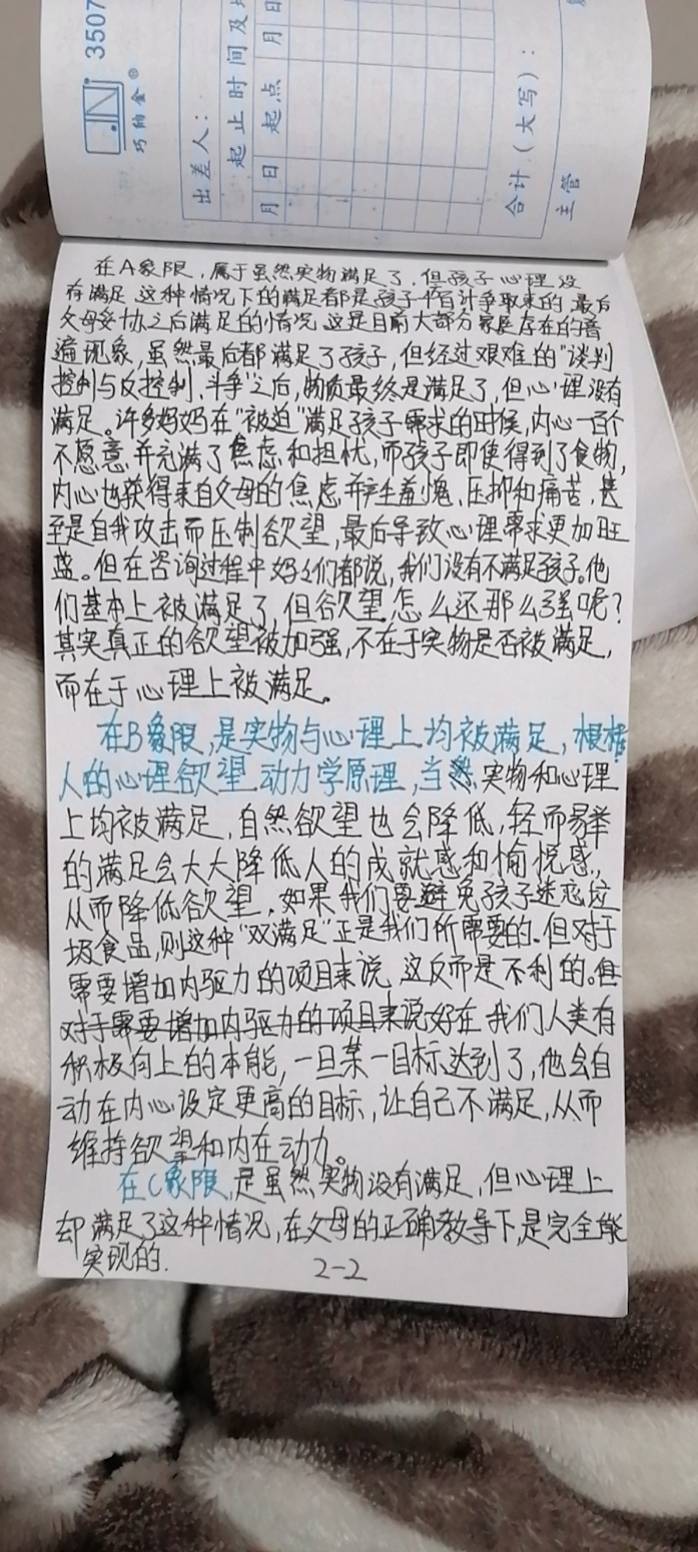 3507
巧的金®
出差人：
起止时间及地
月 日 起点 月 日
合计（大写）：
主管
在A象限，属于虽然实物满足了，但孩子心理没
有满足，这种情况下的满足都是孩子千百计争取来的，最后
父母妥协之后满足的情况，这是目前大部分家庭存在的普
遍现象，虽然最后都满足了孩子，但经过艰难的“谈判
控制与反控制、斗争”之后，物质最终是满足了，但心理没有
满足。许多妈妈在“被迫”满足孩子需求的时候，内心一百个
不愿意，并充满了焦虑和担忧，而孩子即使得到了食物，
内心也获得来自父母的焦虑，并产生羞愧、压抑和痛苦，甚
至是自我攻击而压制欲望，最后导致心理需求更加旺
盛。但在咨询过程中妈々们都说，我们没有不满足孩子。他
们基本上被满足了，但欲望怎么还那么强呢？
其实真正的欲望被加强，不在于实物是否被满足，
而在于心理上被满足。
在B象限，是实物与心理上均被满足，根据
人的心理欲望动力学原理，当然，实物和心理
上均被满足，自然欲望也会降低，轻而易举
的满足会大大降低人的成就感和愉悦感，
从而降低欲望，如果我们要避免孩子迷恋垃
圾食品，则这种“双满足”正是我们所需要的。但对于
需要增加内驱力的项目来说，这反而是不利的。但
对于需要增加内驱力的项目来说好在我们人类有
积极向上的本能，一旦某一目标达到了，他会自
动在内心设定更高的目标，让自己不满足，从而
维持欲望和内在动力。
在C象限，是虽然实物没有满足，但心理上
却满足了这种情况，在父母的正确教导下，是完全能
实现的.
2-2